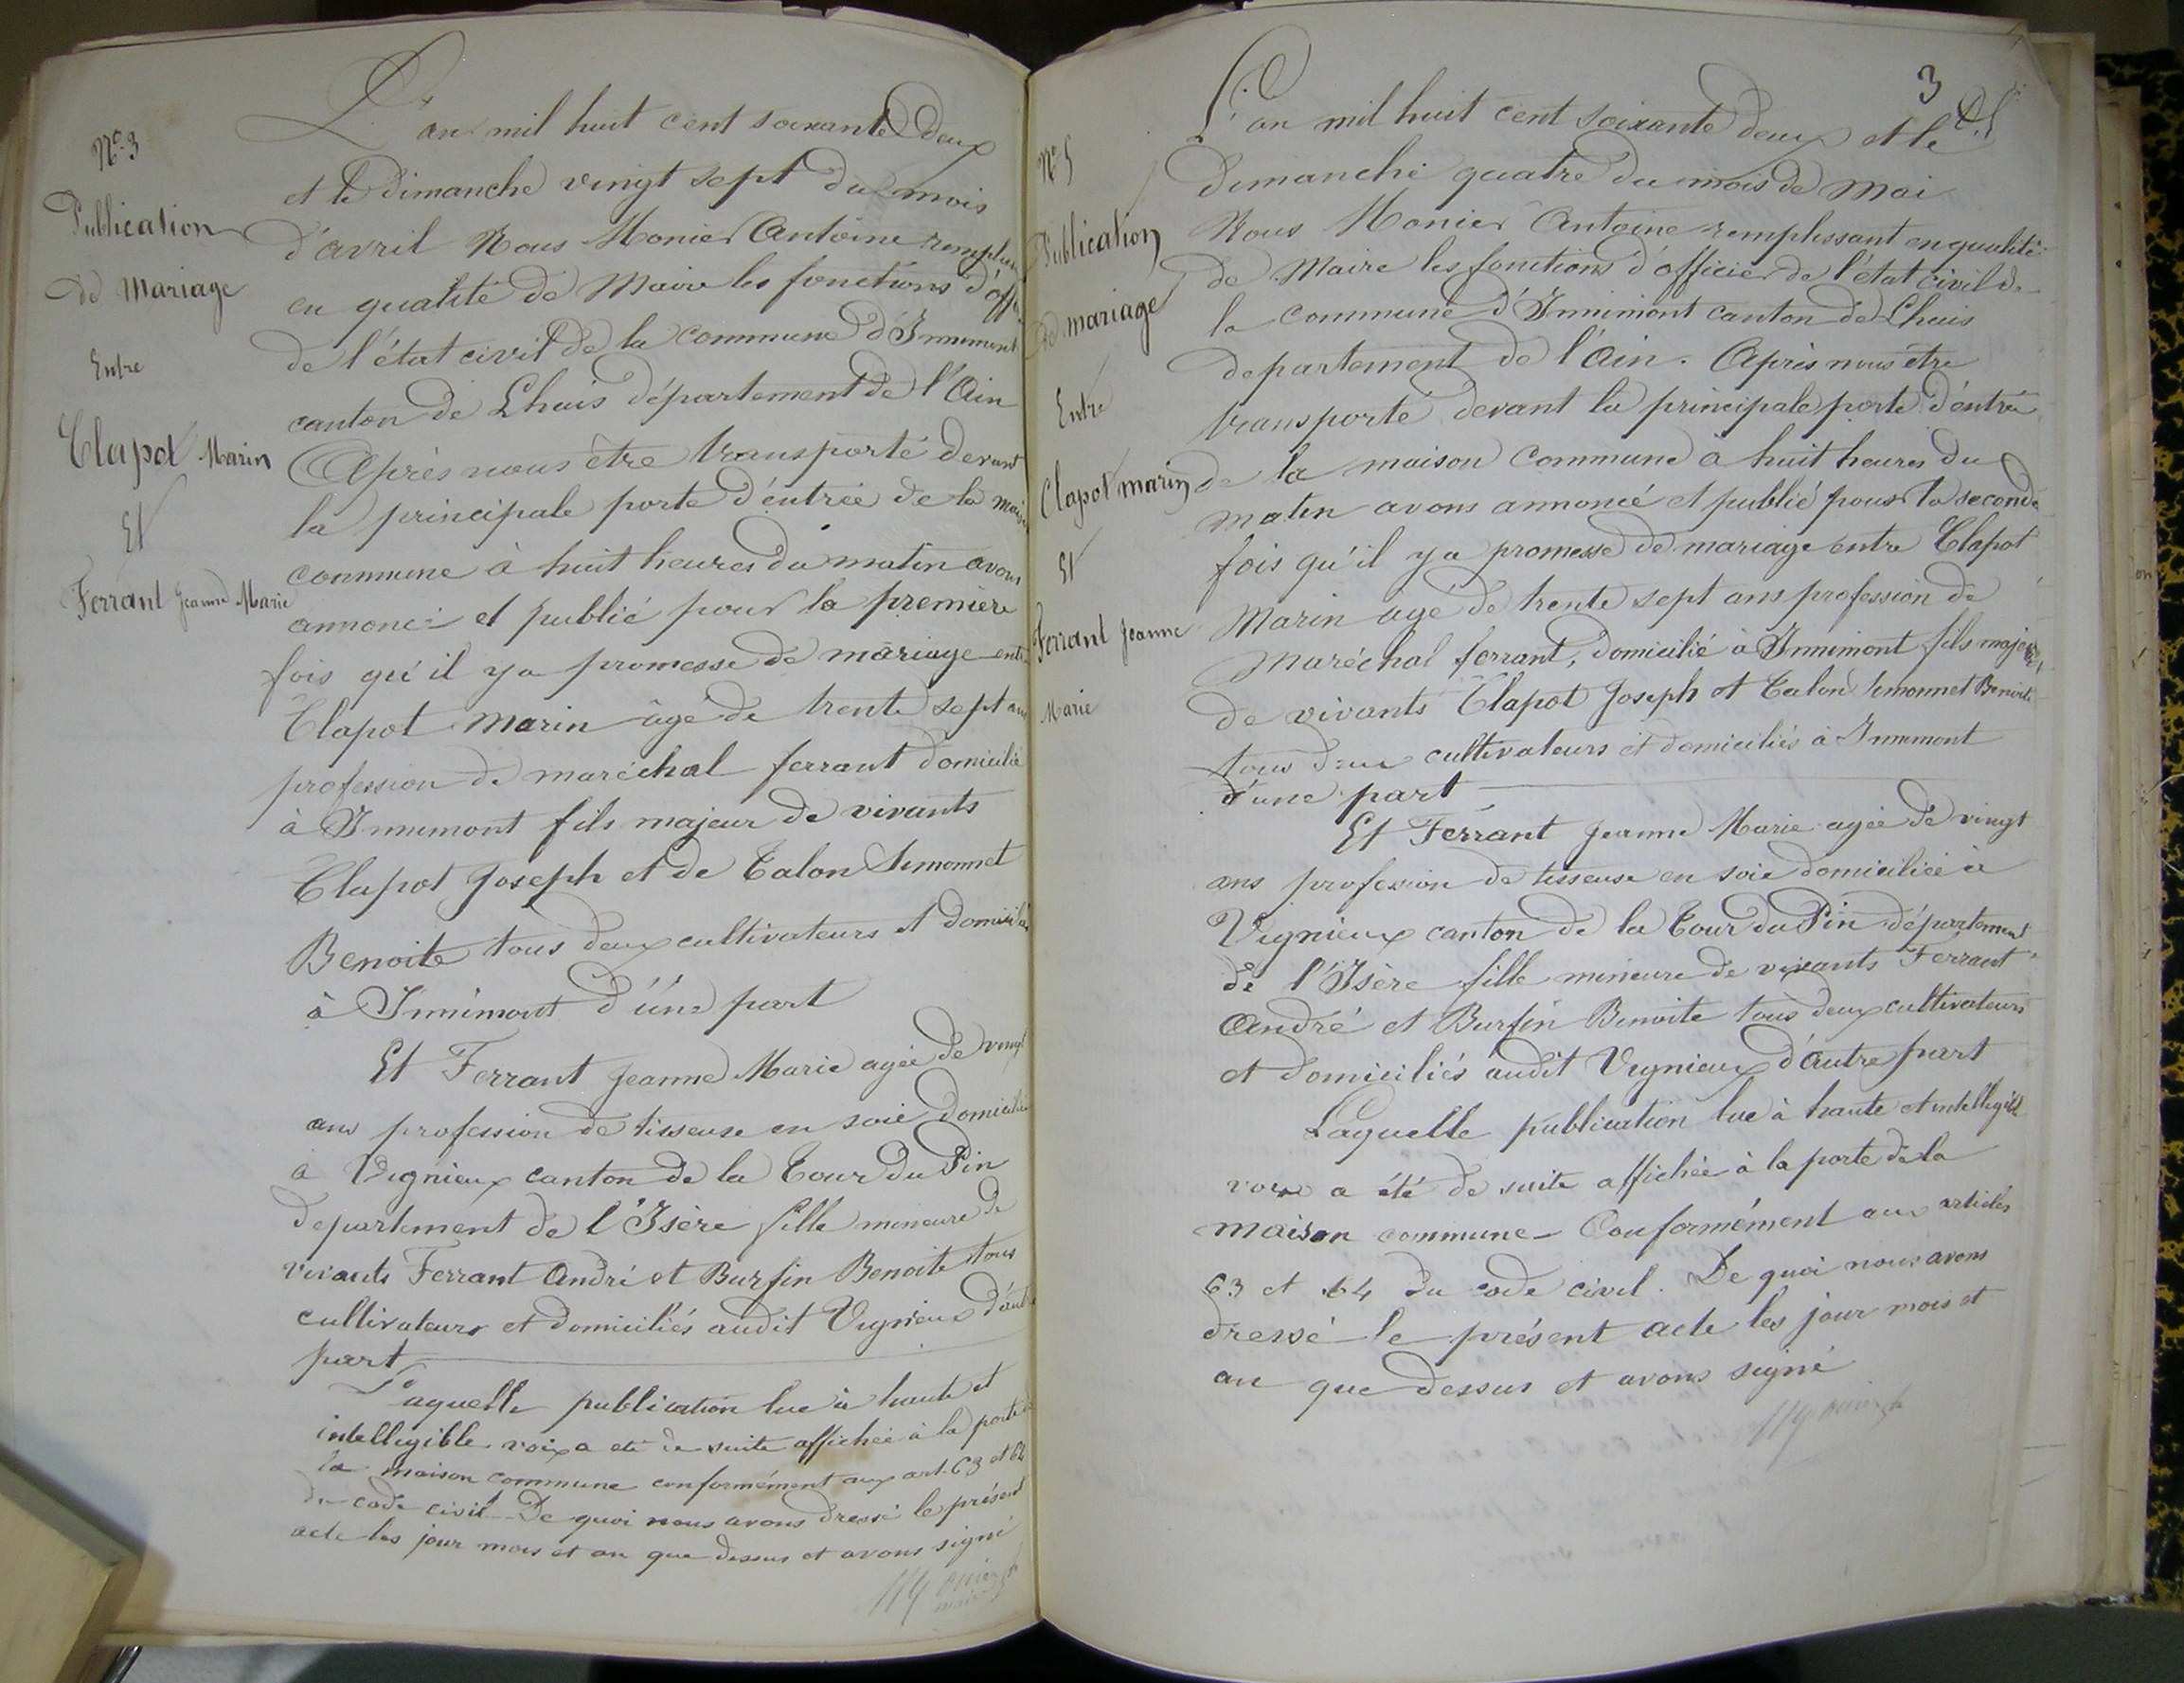 N° 3
Publication
de Mariage
Entre
Clapot Marin
Et
Ferrant Jeanne Marie
L'an mil huit cent soixante deux
et le dimanche vingt sept du mois
d'avril Nous Monier Antoine
en qualité de Maire les fonctions
de l'état civil de la commune d'Innimont
canton de Lhuis département de l'Ain
Après nous être transporté devant
la principale porte d'entrée de la
commune à huit heures du matin avons
annoncé et publié pour la première
fois qu'il y a promesse de mariage entre
Clapot Marin âgé de trente sept ans
profession de maréchal ferrant domicilié
à Innimont fils majeur de vivants
Clapot Joseph et de Talon Simonnet
Benoite tous deux cultivateurs et domiciliés
à Innimont d'une part
Et Ferrant Jeanne Marie agée de vingt
ans profession de tisseuse en soie domiciliée
à Vignieux canton de la Tour du Pin
departement de l'Isère fille mineure de
vivants Ferrant André et Burfin Benoite tous
cultivateurs et domiciliés audit Vignieux d'autre
part
Laquelle publication lue à haute et
intelligible voix a été de suite affichée à la porte de
la maison commune conformément aux art. 63 et 64
du code civil. De quoi nous avons dressé le présent
acte les jour mois et an que dessus et avons signé
Monier
maire
3
N° 5
Publication
de mariage
Entre
Clapot marin
Et
Ferrant Jeanne
Marie
L'an mil huit cent soixante deux et le
dimanche quatre du mois de Mai
Nous Monier Antoine remplissant en qualité
de Maire les fonctions d'officier de l'état civil de
la commune d'Innimont canton de Lhuis
departement de l'Ain. Après nous être
transporté devant la principale porte d'entrée
de la maison commune à huit heures du
matin avons annoncé et publié pour la seconde
fois qu'il y a promesse de mariage entre Clapot
Marin agé de trente sept ans profession de
Maréchal ferrant, domicilié à Innimont fils majeur
de vivants Clapot Joseph et Talon Simonnet Benoite
tous deux cultivateurs et domiciliés à Innimont
d'une part
Et Ferrant Jeanne Marie agée de vingt
ans profession de tisseuse en soie domiciliée à
Vignieux canton de la Tour du Pin département
de l'Isère fille mineure de vivants Ferrant
André et Burfin Benoite tous deux cultivateurs
et domiciliés audit Vignieux d'autre part
Laquelle publication lue à haute et intelligible
voix a été de suite affichée à la porte de la
maison commune - Conformément aux articles
63 et 64 du code civil. De quoi nous avons
dressé le présent acte les jour mois et
an que dessus et avons signé
Monier